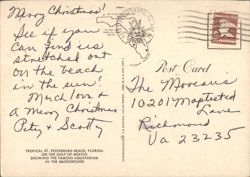 Merry Christmas!
See if you
can find us
stretched out
on the beach
in the sun!
Much love &
a Merry Christmas
Pete & Scotty
TROPICAL ST. PETERSBURG BEACH, FLORIDA
ON THE GULF OF MEXICO
SHOWING THE FAMOUS AQUATARIUM
IN THE BACKGROUND
Post Card
The Moreaus
10201 Maplested
Lane
Richmond
Va 23235